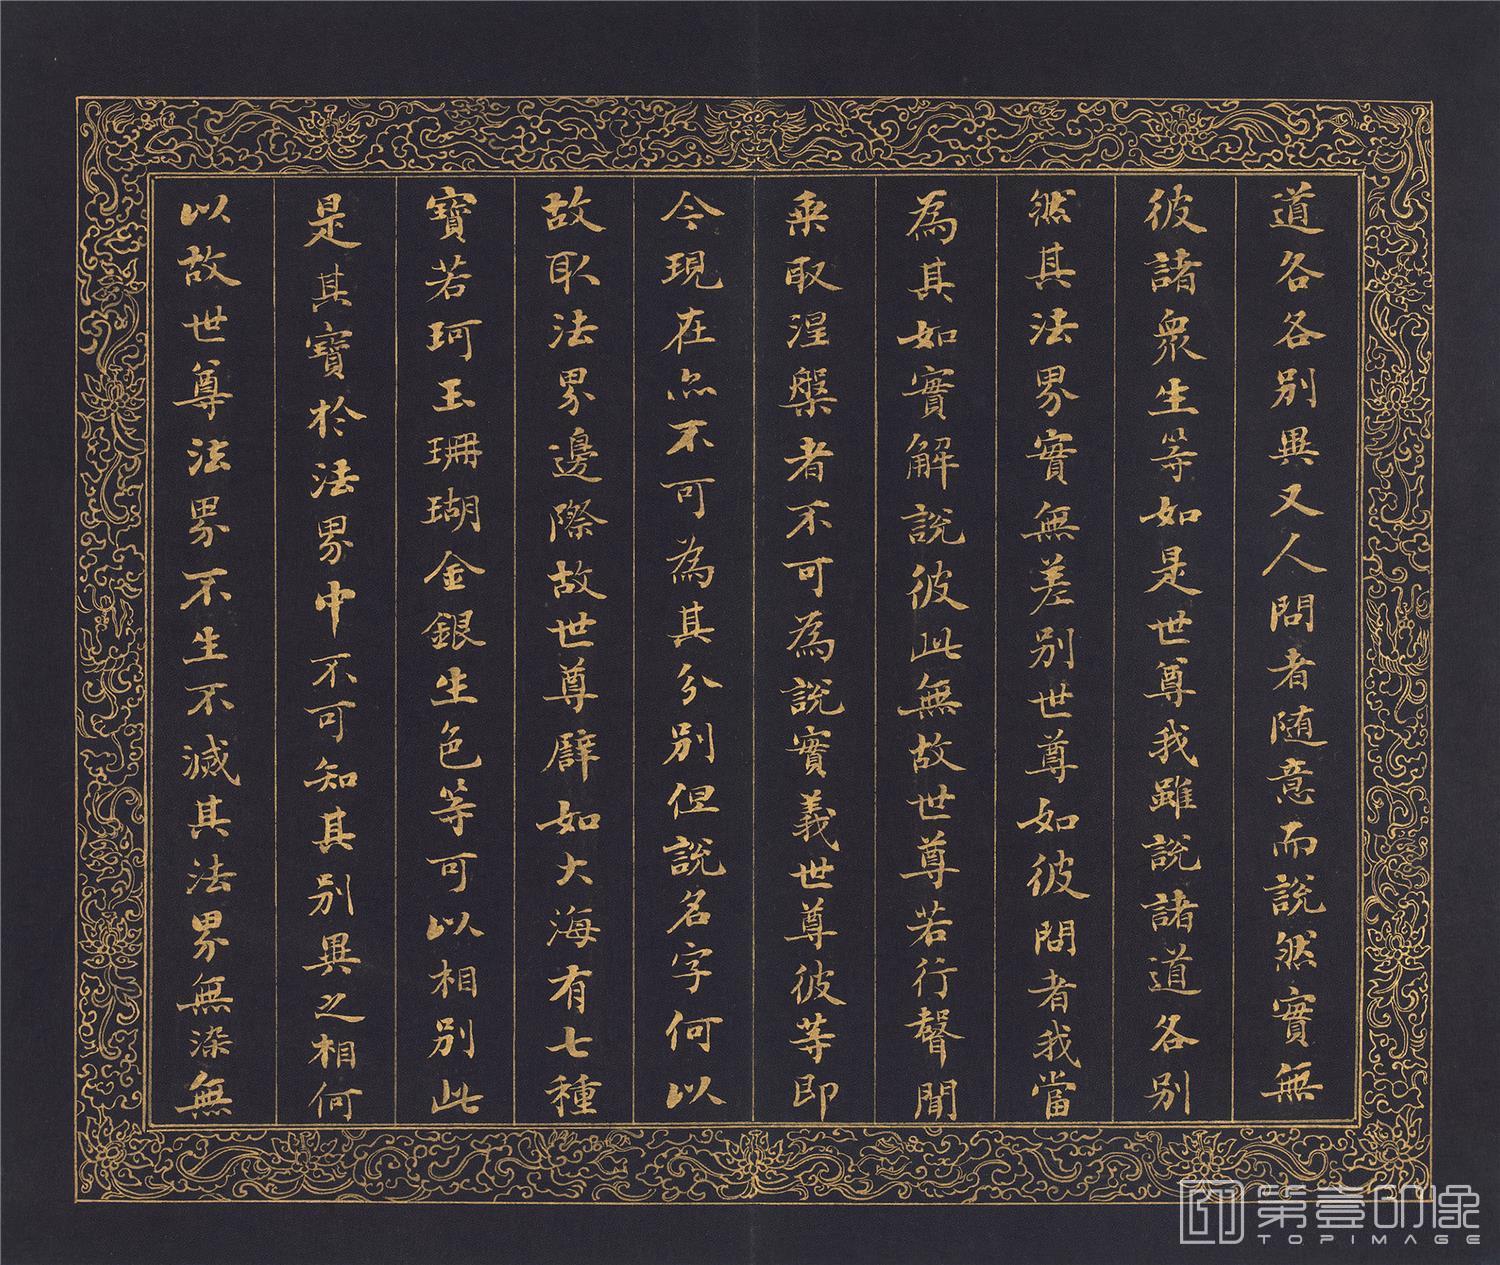 道各各別異又人問者随意而說然實無
彼諸衆生等如是世尊我雖說諸道各別
然其法界實無差別世尊如彼問者我當
為其如實解說彼此無故世尊若行聲聞
乘取涅槃者不可為說實義世尊彼等即
今現在亦不可為其分別但說名字何以
故取法界邊際故世尊譬如大海有七種
寶若珂玉珊瑚金銀生色等可以相別此
是其寶於法界中不可知其別異之相何
以故世尊法界不生不滅其法界無染無
第壹印像
TOPIMAGE